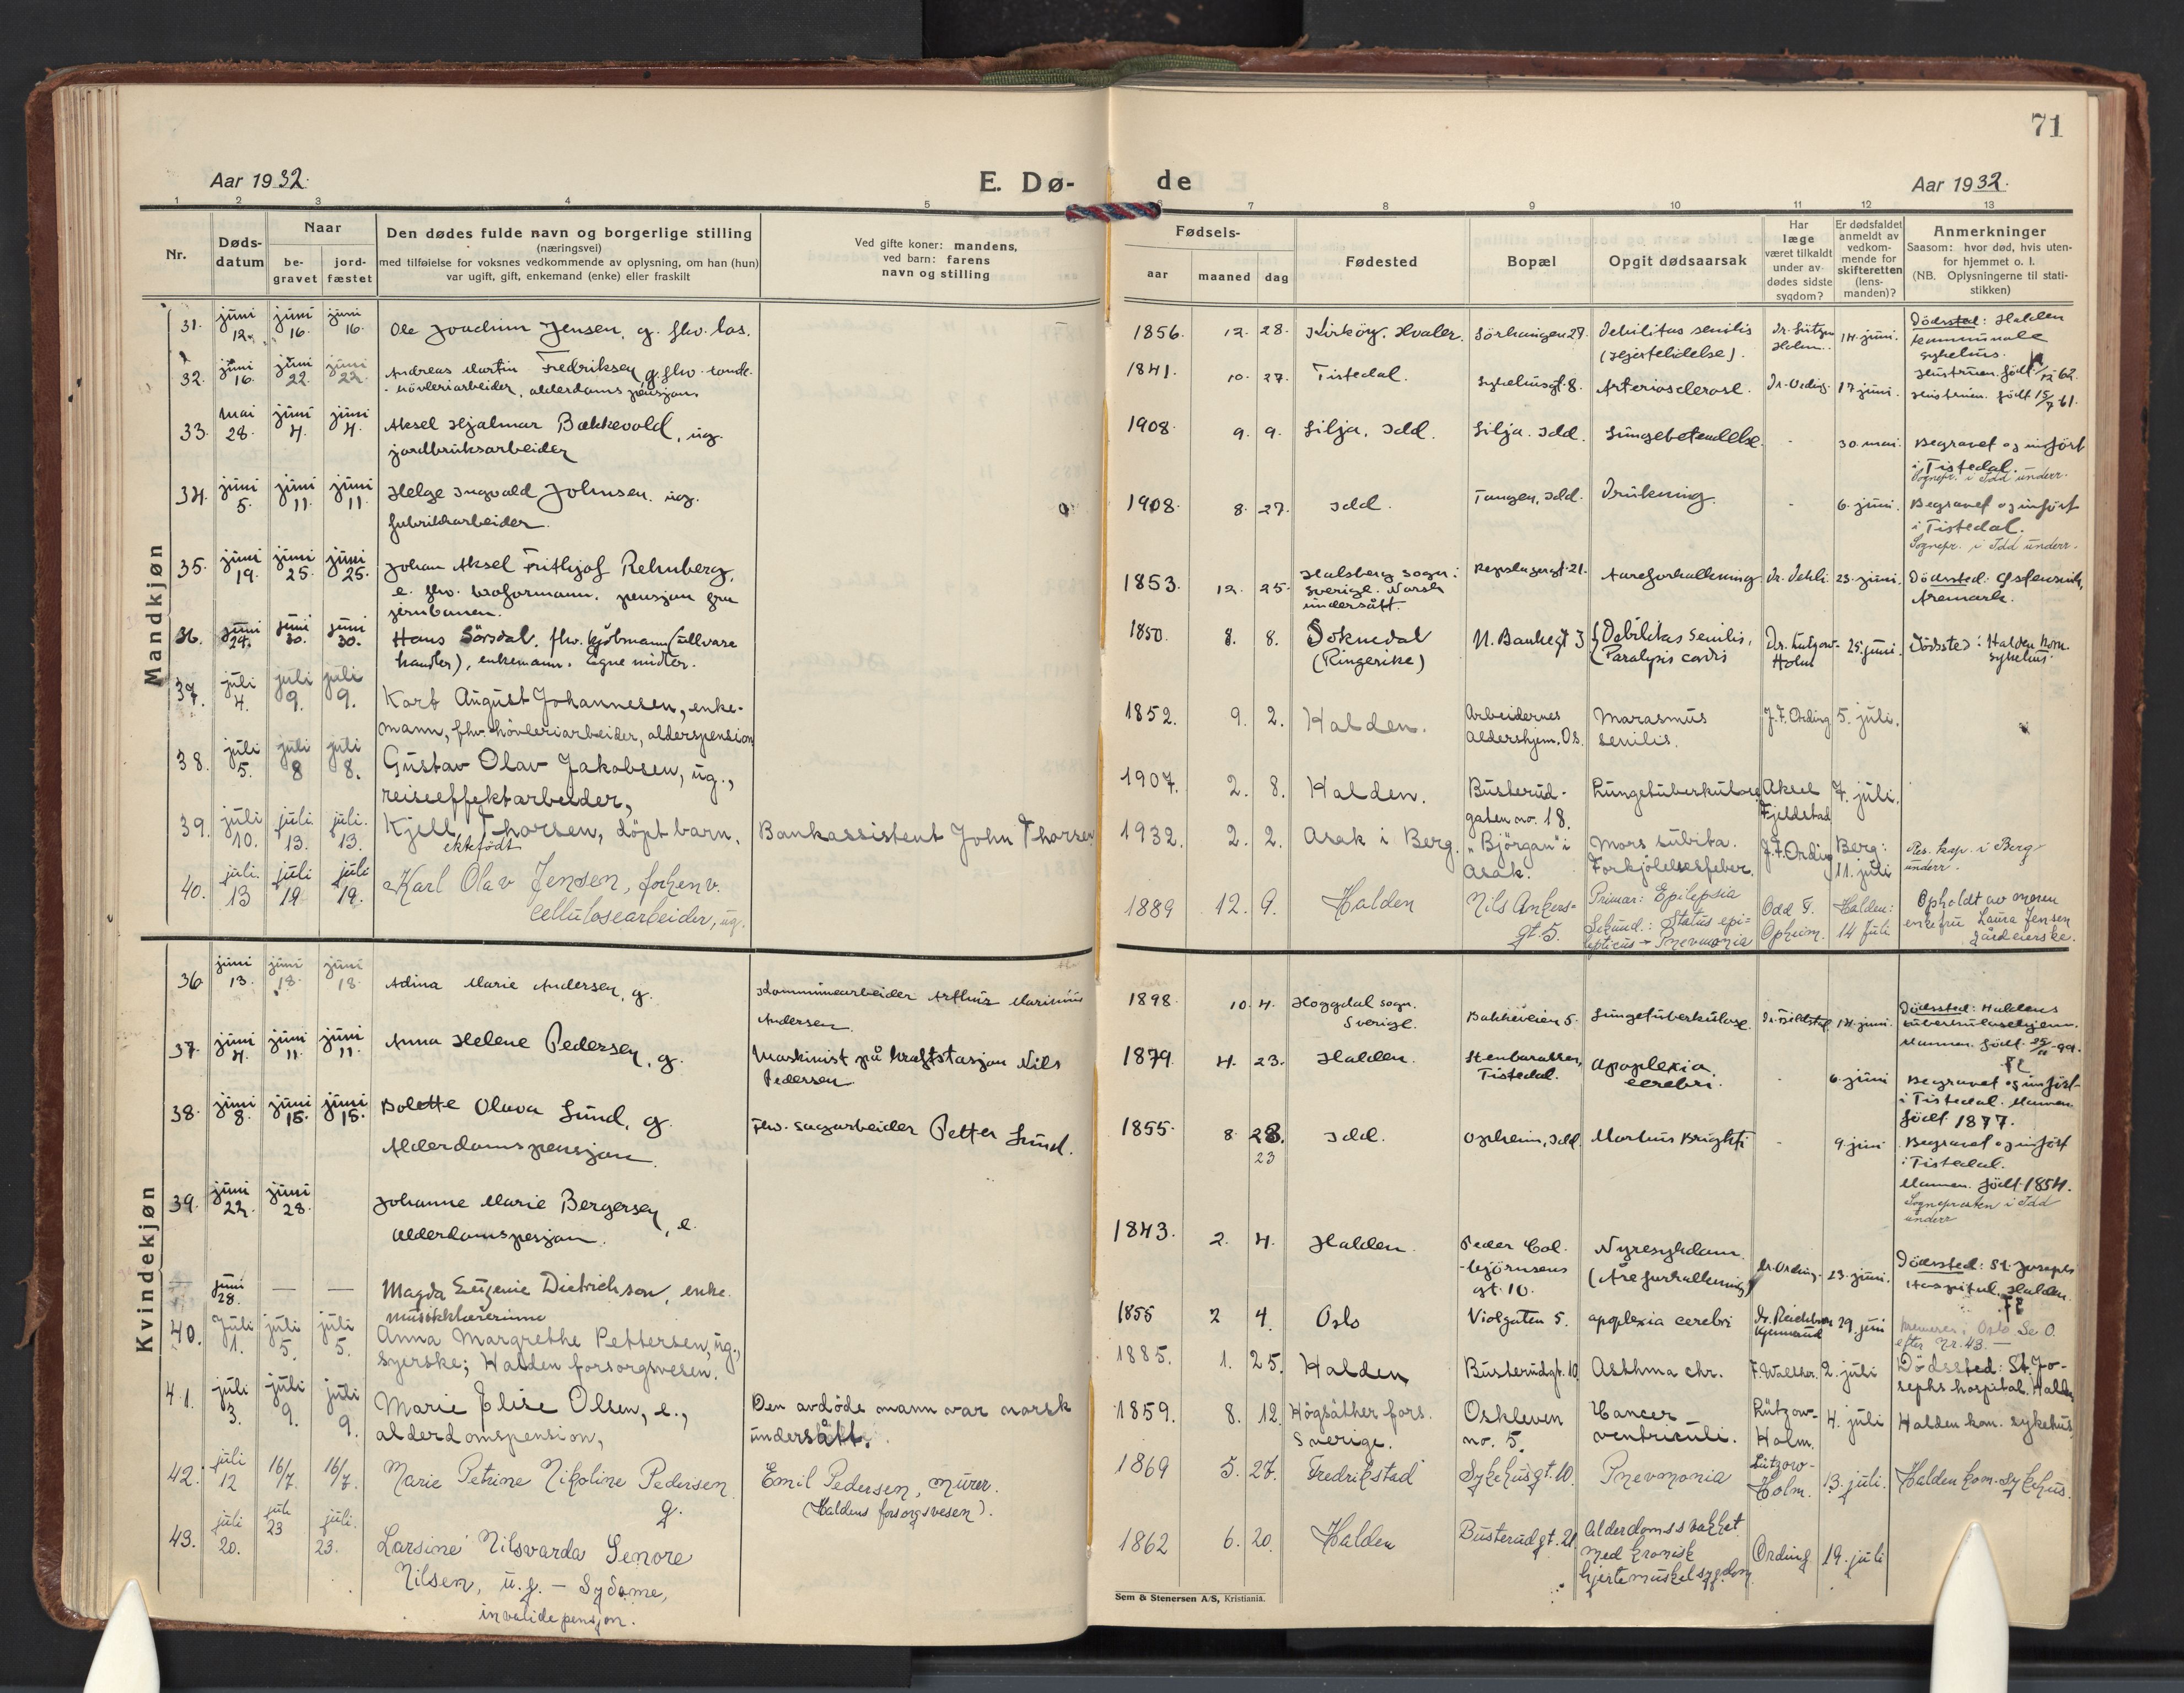 71
Aar 1932.
E. Dø-
de
Aar 1932.
1 2 3 4 5 6 7 8 9 10 11 12 13
Nr.
Døds-
datum
Naar
be-
gravet
jord-
fæstet
Den dødes fulde navn og borgerlige stilling
(næringsvei)
med tilføielse for voksnes vedkommende av oplysning, om han (hun)
var ugift, gift, enkemand (enke) eller fraskilt
Ved gifte koner: mandens,
ved barn: farens
navn og stilling
Fødsels-
aar
maaned
dag
Fødested
Bopæl
Opgit dødsaarsak
Har
læge
været tilkaldt
under av-
dødes sidste
sygdom?
Er dødsfaldet
anmeldt av
vedkom-
mende for
skifteretten
(lens-
manden)?
Anmerkninger
Saasom: hvor død, hvis uten-
for hjemmet o. l.
(NB. Oplysningerne til stati-
stikken)
Mandkjøn
31. juni 12. juni 16. juni 16. Ole Joachim Jensen, g. fhv. los.
1856. 12. 28. Kirköy, Hvaler. Sörhaugen 27. Debilitas senilis
(Hjertelidelse).
Dr. Lützow
Holm.
14. juni.
Dödssted: Halden
kommunale
sykehus.
Hustruen född
32. juni 16. juni 22. juni 22. Andreas Martin Fredriksen g. fhv.
hövleriarbeider, alderdomspensjon
1841. 10. 27. Tistedal. Sykehusgt. 8. Arteriosclerose. Dr. Ording. 17 juni. Hustruen. födt 15/7 61.
33. mai 28. juni 4. juni 4. Aksel Hjalmar Bakkevold, ug.
jordbruksarbeider
1908. 9. 9. Lilja, Idd. Lilja. Idd. Lungebetendelse. - 30. mai. Begravet og innfört
i Tistedal.
Sognepr. i Idd underr.
34. juni 5. juni 11. juni 11. Helge Ingvald Johnsen. ug.
fabrikkarbeider.
1908. 8. 27. Idd. Tangen, Idd. Drukning. - 6. juni. Begravet og innfört
i Tistedal.
Sognepr. i Idd underr.
35. juni 19. juni 25. juni 25. Johan Aksel Frithjof Rehnberg,
e. fhv. broformann. pensjon fra
jernbanen.
1853. 12. 25. Halsberg sogn i
Sverige. Norsk
undersått.
Repslagergt. 21. Aareforkalkning Dr. Dehli. 23. juni. Dödssted:
Aremark.
36. juni 24. juni 30. juni 30. Hans Sörsdal. fhv. kjöbmann (ullvare
handler), enkemann. Egne midler.
1850. 8. 8. Soknedal
(Ringerike)
N. Bankegt 3 Debilitas senilis,
Paralysis cordis
Dr. Lutzow-
Holm
25. juni. Dödssted: Halden kom.
sykehus.
37. juli 4. juli 9. juli 9. Karl August Johannesen, enke-
mann, fhv. hövleriarbeider, alderspension
1852. 9. 2. Halden. Arbeidernes
aldershjem, Os.
Marasmus
senilis.
J. F. Ording 5. juli.
38. juli 5. juli 8 juli 8. Gustav Olav Jakobsen, ug.,
reiseeffektarbeider,
1907. 2. 8. Halden. Busterud-
gaten no. 18.
Lungetuberkulose Aksel
Fjeldstad
7. juli.
39. juli 10. juli 13. juli. 13. Kjell Thorsen, döpt barn.
ektefödt
Bankassistent John Thorsen
1932. 2. 2. Asak i Berg. "Björgan" i
Asak.
Mors subita.
Forkjölelsesfeber.
J. F. Ording Berg:
11. juli
Res. kap. i Berg
underr.
40. juli. 13 juli 19. juli 19. Karl Olav Jensen, forhenv.
cellulosearbeider, ug.
1889 12. 9. Halden Nils Ankers=
gt. 5.
Primær: Epilepsia
Sekund.: Status epi=
lepticus - Pnevmonia
Odd F.
Opheim.
Halden:
14 juli
Opholdt av moren
enkefru Laura Jensen
gårdeierske.
Kvindekjøn
36 juni 13. juni 18. juni 18. Adina Marie Andersen, g.
Kommunearbeider Arthur Marinius
Andersen.
1898. 10. 4. Hoggdal sogn.
Sverige.
Bakkeveien 5. Lungetuberkulose. Dr. Fjeldstad 14. juni. Dödssted: Haldens
tuberkulosehjem.
Mannen. född
37. juni 4. juni 11. juni 11. Anna Helene Pedersen, g.
Maskinist på kraftstasjon Nils
Pedersen.
1879. 4. 23. Halden. Stenbarakken,
Tistedal.
Apoplexia
cerebri.
- 6. juni Begravet og innfört
i Tistedal. Mannen
född 1877.
38. juni 8. juni 15. juni 15. Bolette Olava Lund, g.
Alderdomspensjon.
Fhv. sagarbeider Petter Lund.
1855. 8. 23. 23 Idd. Opheim, Idd. Morbus Brighti - 9. juni Begravet og innfört
i Tistedal.
Mannen. född. 1854.
Sognepresten i Idd
underr
39. juni 22. juni 28. Johanne Marie Bergersen, e.
Alderdomspensjon.
1843. 2. 4. Halden. Peder Col-
björnsens
gt. 10.
Nyresykdom.
(Åreforkalkning)
Dr. Ording. 23. juni. Dödssted: St. Josephs
Hospital, Halden.
— juni 28. — — Magda Eugenie Dietrichson, enke.
musikklærerinne
1855 2 4. Oslo Violgaten 5. apoplexia cerebri
29 juni
i Oslo Se O.
efter Nr. 43. —
40. Juli 1. juli 5. juli 5. Anna Margrethe Pettersen, ug.,
syerske; Halden forsorgsvesen.
1885. 1. 25. Halden Busterudgt. 10 Asthma chr. F. Walther. 2. juli Dödssted: St. Jo-
sephs hospital. Halden
41. juli 3. juli 9. juli 9. Marie Elise Olsen, e.,
alderdomspension,
Den avdöde mann var norsk
undersått.
1859. 8. 12. Högsäther fors.
Sverige.
Oskleven
no. 5.
Cancer
ventriculi.
Lützow-
Holm.
4. juli Halden kom. sykehus
42. juli 12 16/7. 16/7. Marie Petrine Nikoline Pedersen
g.
Emil Pedersen, murer.
(Haldens forsorgsvesen).
1869 5. 27. Fredrikstad Sykehusgt. 10. Pnevmonia Lützow-
Holm.
13. juli. Halden kom. sykehus.
43. juli 20. juli 23 juli. 23. Larsine Nilsvarda Lenore
Nilsen, u. g. - Sydame,
invalidepensjon.
1862 6. 20. Halden Busterudgt. 21 Alderdomssvakhet
med kronisk
hjertemuskelsygdom
Ording 19. juli
Sem & Stenersen A/S, Kristiania.